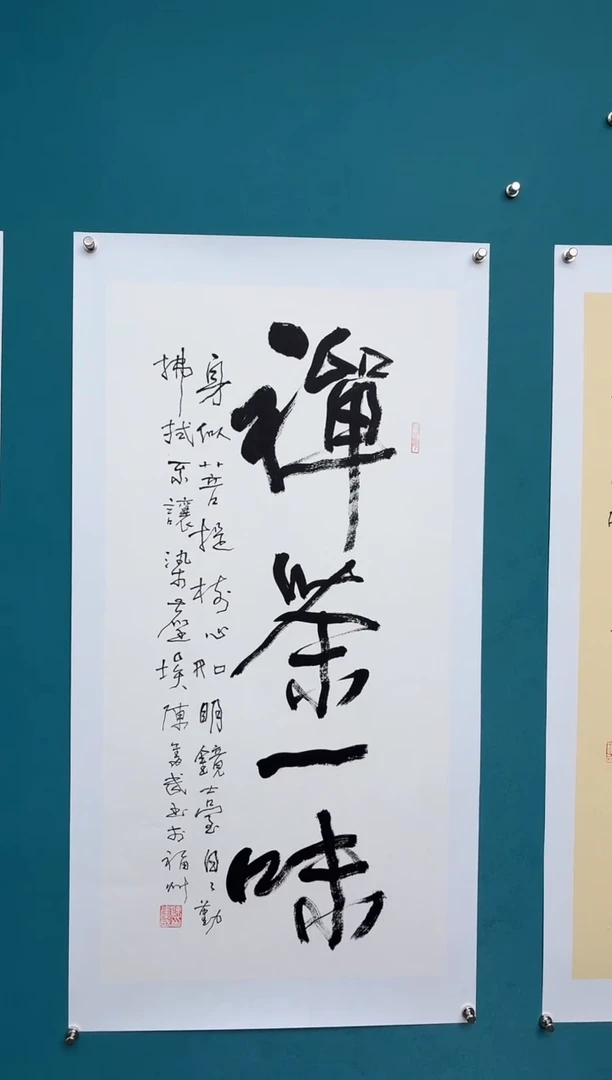 禪茶一味
身似菩提樹心如明鏡臺日々勤
拂拭不讓染塵埃陳武書於福州